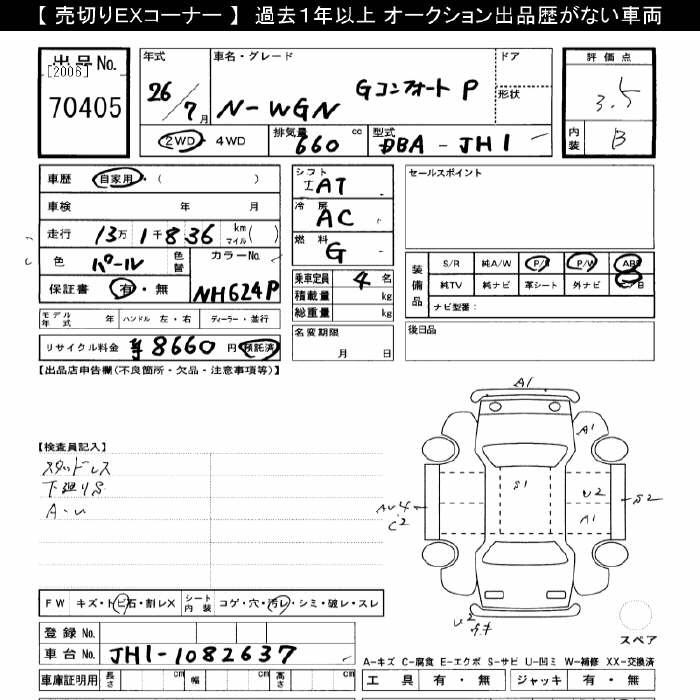 【 売切りEXコーナー 】 過去1年以上 オークション出品歴がない車両
出品No.
[2006]
70405
年式
26/7月
車名・グレード
Gコンフォート P
N-WGN
ドア
形状
評価点
3.5
内装
B
2WD・4WD
排気量 660 cc
型式 DBA - JH1
車歴 自家用・( )
車検 年 月
走行 13万 1千836 km マイル ( )
色 パール 色替
カラーNo. NH624P
保証書 有・無
モデル年式 年 ハンドル 左・右 ディーラー・並行
リサイクル料金 ¥8660 円 預託済
シフト
エAT
冷房
AC
燃料
G
乗車定員 4 名
積載量 kg
総重量 kg
名変期限
月 日
セールスポイント
装備品
S/R 純A/W P/S P/W ABS
純TV 純ナビ 革シート 外ナビ
ナビ型番:
後日品
【出品店申告欄(不良箇所・欠品・注意事項等)】
【検査員記入】
スタッドレス
下廻りS
A・U
A1
A1
S1
U2
A1
S2
AU4
C2
U2
キキ
FW キズ・トビ石・割レX
シート内装 コゲ・穴・汚レ・シミ・破レ・スレ
登録No.
車台No. JH1-1082637
車庫証明用 長さ cm 幅 cm 高さ cm
スペア
A-キズ C-腐食 E-エクボ S-サビ U-凹ミ W-補修 XX-交換済
工具 有・無 ジャッキ 有・無